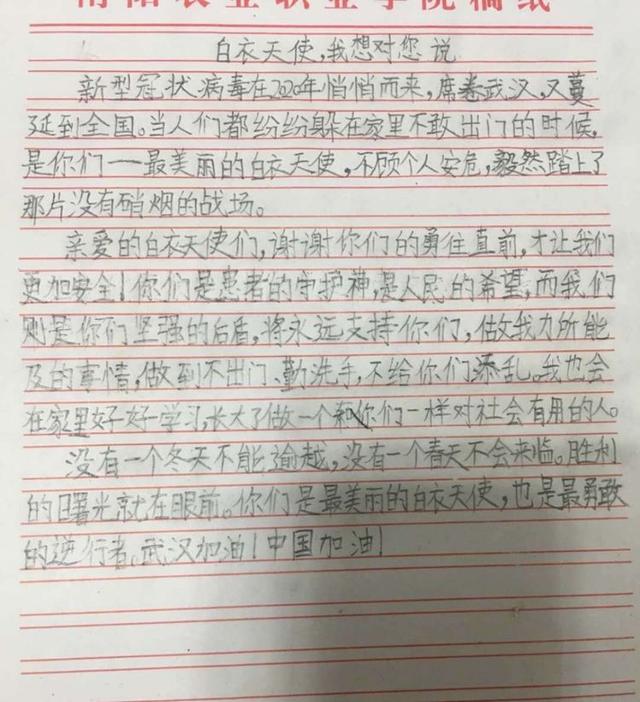 南阳农业职业学院稿纸
白衣天使,我想对您说
新型冠状病毒在2020年悄悄而来,席卷武汉,又蔓
延到全国。当人们都纷纷躲在家里不敢出门的时候,
是你们——最美丽的白衣天使,不顾个人安危,毅然踏上了
那片没有硝烟的战场。
亲爱的白衣天使们,谢谢你们的勇往直前,才让我们
更加安全!你们是患者的守护神,是人民的希望,而我们
则是你们坚强的后盾,将永远支持你们,做我力所能
及的事情,做到不出门、勤洗手,不给你们添乱。我也会
在家里好好学习,长大了做一个和你们一样对社会有用的人。
没有一个冬天不能逾越,没有一个春天不会来临。胜利
的曙光就在眼前。你们是最美丽的白衣天使,也是最勇敢
的逆行者。武汉加油!中国加油!